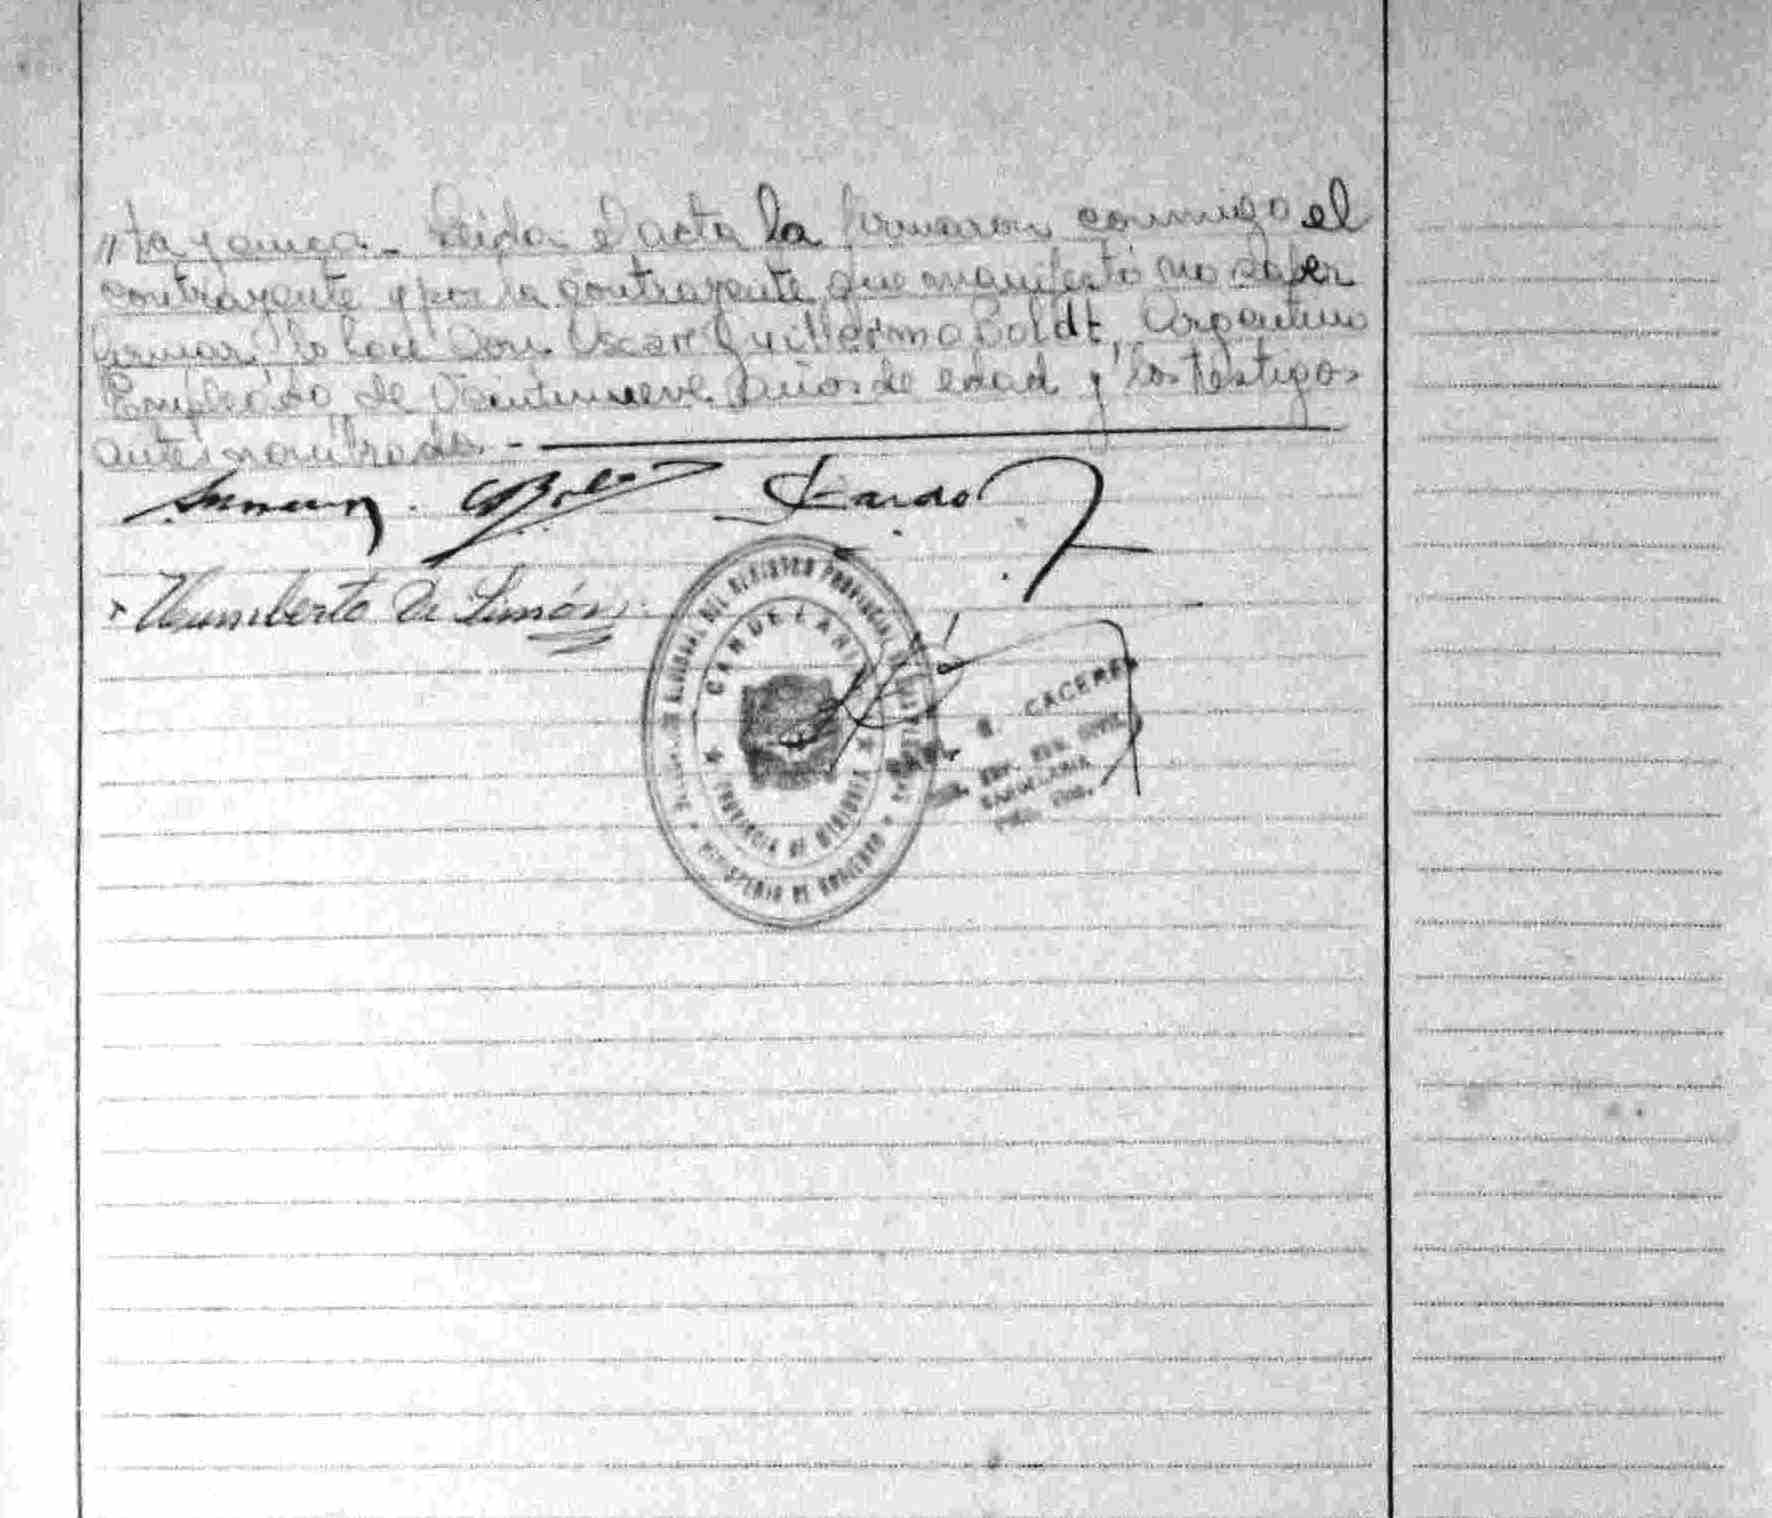 "ta y cinco.- Leida el acta la firmaron conmigo el
contrayente y por la contrayente que manifestó no saber
firmar lo hace Don Oscar Guillermo Boldt, Argentino
Empleado de Veintinueve años de edad y los testigos
antes nombrados.-
Humberto De Simón
DEL REGISTRO PROVINCIAL DE LAS PERSONAS
CANDELARIA
PROVINCIA DE MISIONES
MINISTERIO DE GOBIERNO
CACERES
CANDELARIA